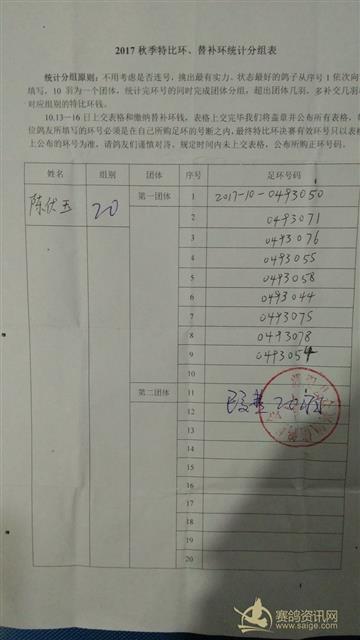 2017 秋季特比环、替补环统计分组表
统计分组原则：不用考虑是否连号，挑出最有实力、状态最好的鸽子从序号 1 依次向
填写，10 羽为一个团体，统计完环号的同时完成团体分组，超出团体几羽，多补交几羽
对应组别的特比环钱。
10.13—16 日上交表格和缴纳替补环钱，表格上交完毕我们将盖章并公布所有表格，
位鸽友所填写的环号必须是在自己所购足环的号断之内，最终特比环决赛有效环号只以表
上公布的环号为准，请鸽友们谨慎对待，规定时间内未上交表格，公布所购正环号码。
姓名 组别 团体 序号 足环号码
陈伏玉 20 第一团体 1 2017-10-0493050
2 0493071
3 0493076
4 0493055
5 0493058
6 0493044
7 0493075
8 0493078
9 0493054
10
第二团体 11
12
13
14
15
16
17
18
19
20
赛鸽资讯网
www.saige.com